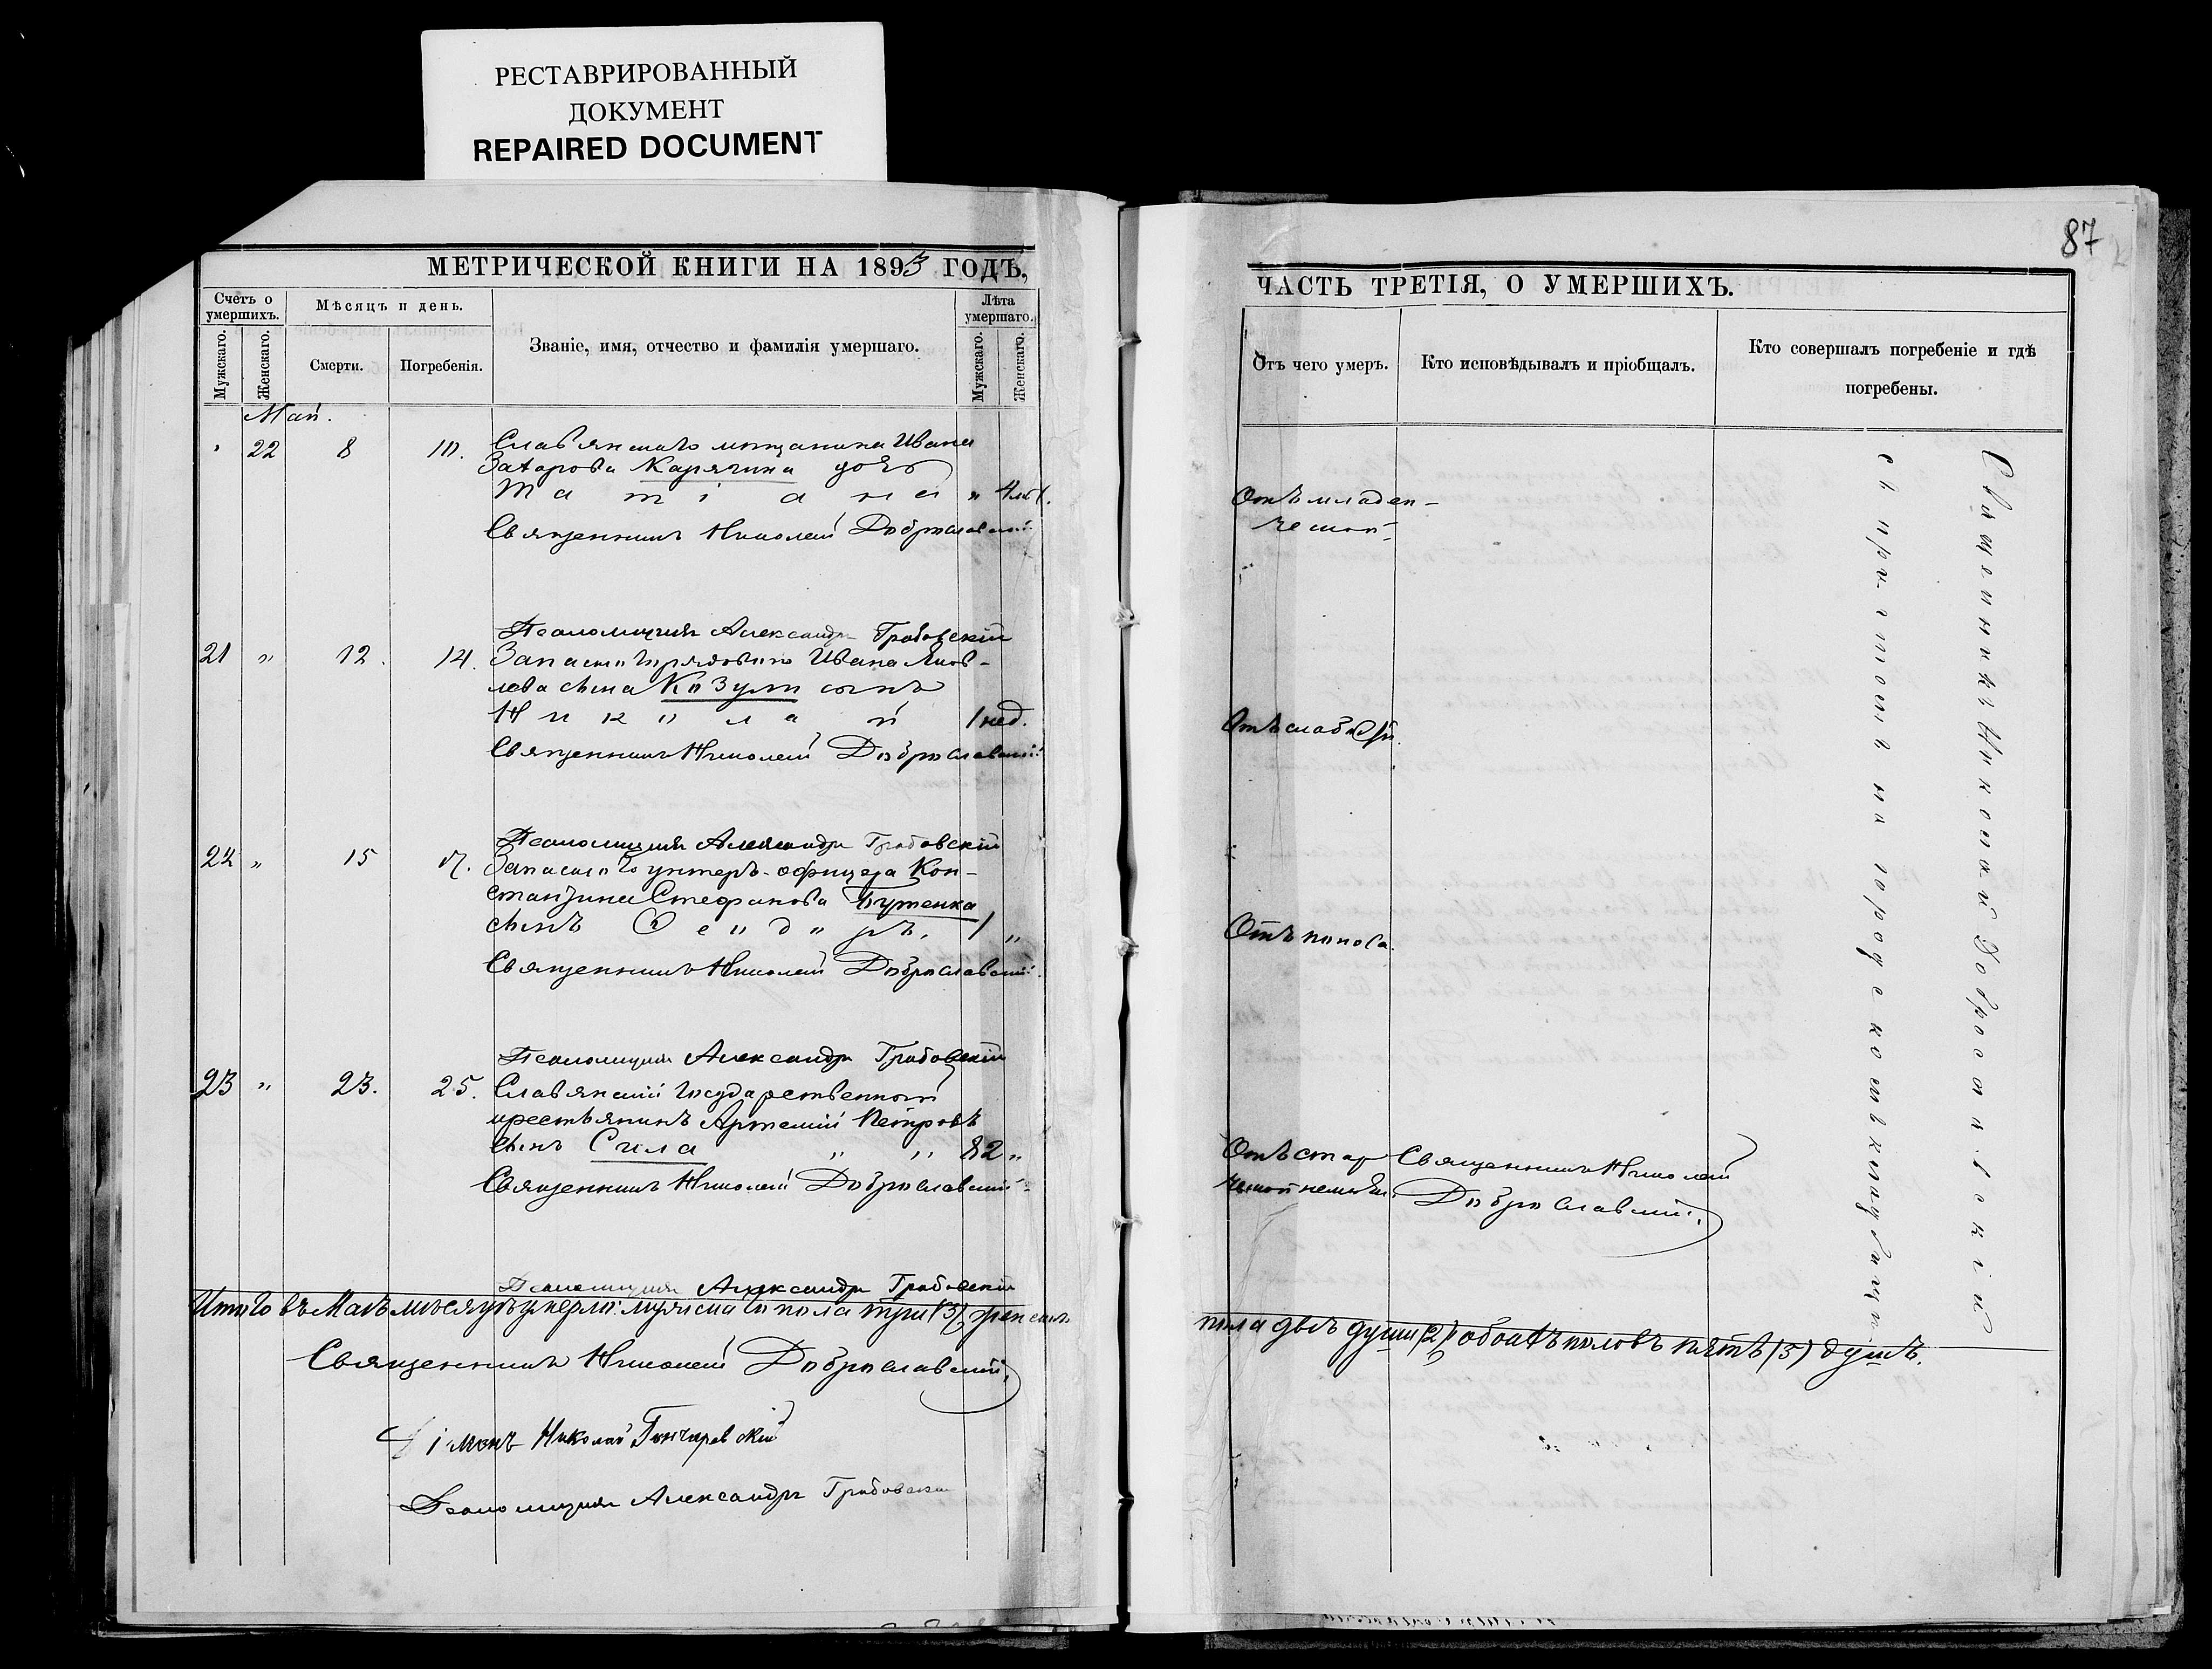 РЕСТАВРИРОВАННЫЙ
ДОКУМЕНТ
REPAIRED DOCUMENT
МЕТРИЧЕСКОЙ КНИГИ НА 1893 ГОДЪ,
Счетъ о умершихъ.
Мѣсяцъ и день.
Званіе, имя, отчество и фамилія умершаго.
Лѣта умершаго.
Мужскаго.
Женскаго.
Смерти.
Погребенія.
Мужскаго.
Женскаго.
Май.
" 22 8 10. Славянскаго мѣщанина Ивана
Захарова Карячина дочь
Татіана " 4 лѣт.
Священникъ Николай Доброславскій
Псаломщикъ Александръ Грабовскій
21 " 12. 14. Запаснаго рядового Ивана Яков-
лева сына Козули сынъ
Николай 1 нед.
Священникъ Николай Доброславскій
Псаломщикъ Александръ Грабовскій
22 " 15 17. Запаснаго унтеръ-офицера Кон-
стантина Стефанова Бутенка
сынъ Ѳеодоръ, 1 "
Священникъ Николай Доброславскій
Псаломщикъ Александръ Грабовскій
23 " 23. 25. Славянскій государственной
крестьянинъ Артемій Петровъ
сынъ " " 82 "
Священникъ Николай Доброславскій
Псаломщикъ Александръ Грабовскій
Итого въ Маѣ мѣсяцѣ умерло: мужскаго пола три (3) женскаго
Священникъ Николай Доброславскій,
Діаконъ Николай Гончаревскій
Псаломщикъ Александръ Грабовскій
87
ЧАСТЬ ТРЕТІЯ, О УМЕРШИХЪ.
Отъ чего умеръ.
Кто исповѣдывалъ и пріобщалъ.
Кто совершалъ погребеніе и гдѣ
погребены.
Отъ младен-
ческой
Отъ слабости.
Отъ поноса.
Отъ стар
ческой немощи.
Священникъ Николай
Доброславскій.
Священникъ Николай Доброславскій
съ причтомъ на городскомъ кладбищѣ.
пола двѣ души (2) обоихъ половъ пять (5) душъ.